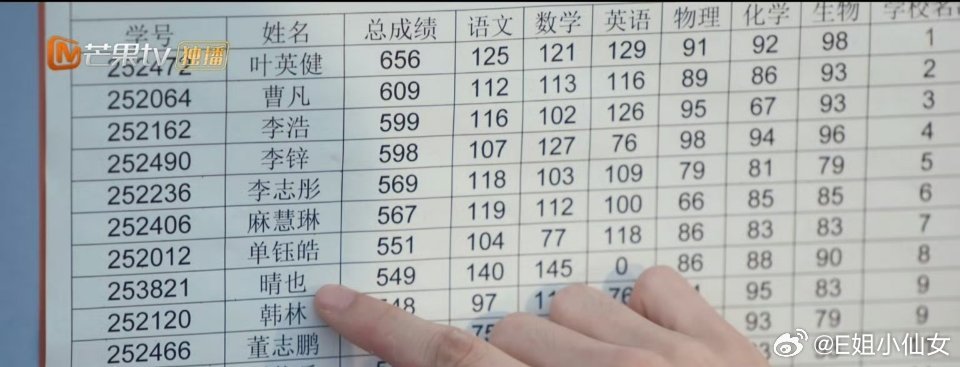 学号 姓名 总成绩 语文 数学 英语 物理 化学 生物 学校名
芒果tv 独播
252472 叶英健 656 125 121 129 91 92 98 1
252064 曹凡 609 112 113 116 89 86 93 2
252162 李浩 599 116 102 126 95 67 93 3
252490 李锌 598 107 127 76 98 94 96 4
252236 李志彤 569 118 103 109 79 81 79 5
252406 麻慧琳 567 119 112 100 66 85 85 6
252012 单钰皓 551 104 77 118 86 83 83 7
253821 晴也 549 140 145 0 86 88 90 8
252120 韩林 97 76 95 83 9
252466 董志鹏 75 93 79 9
@E姐小仙女